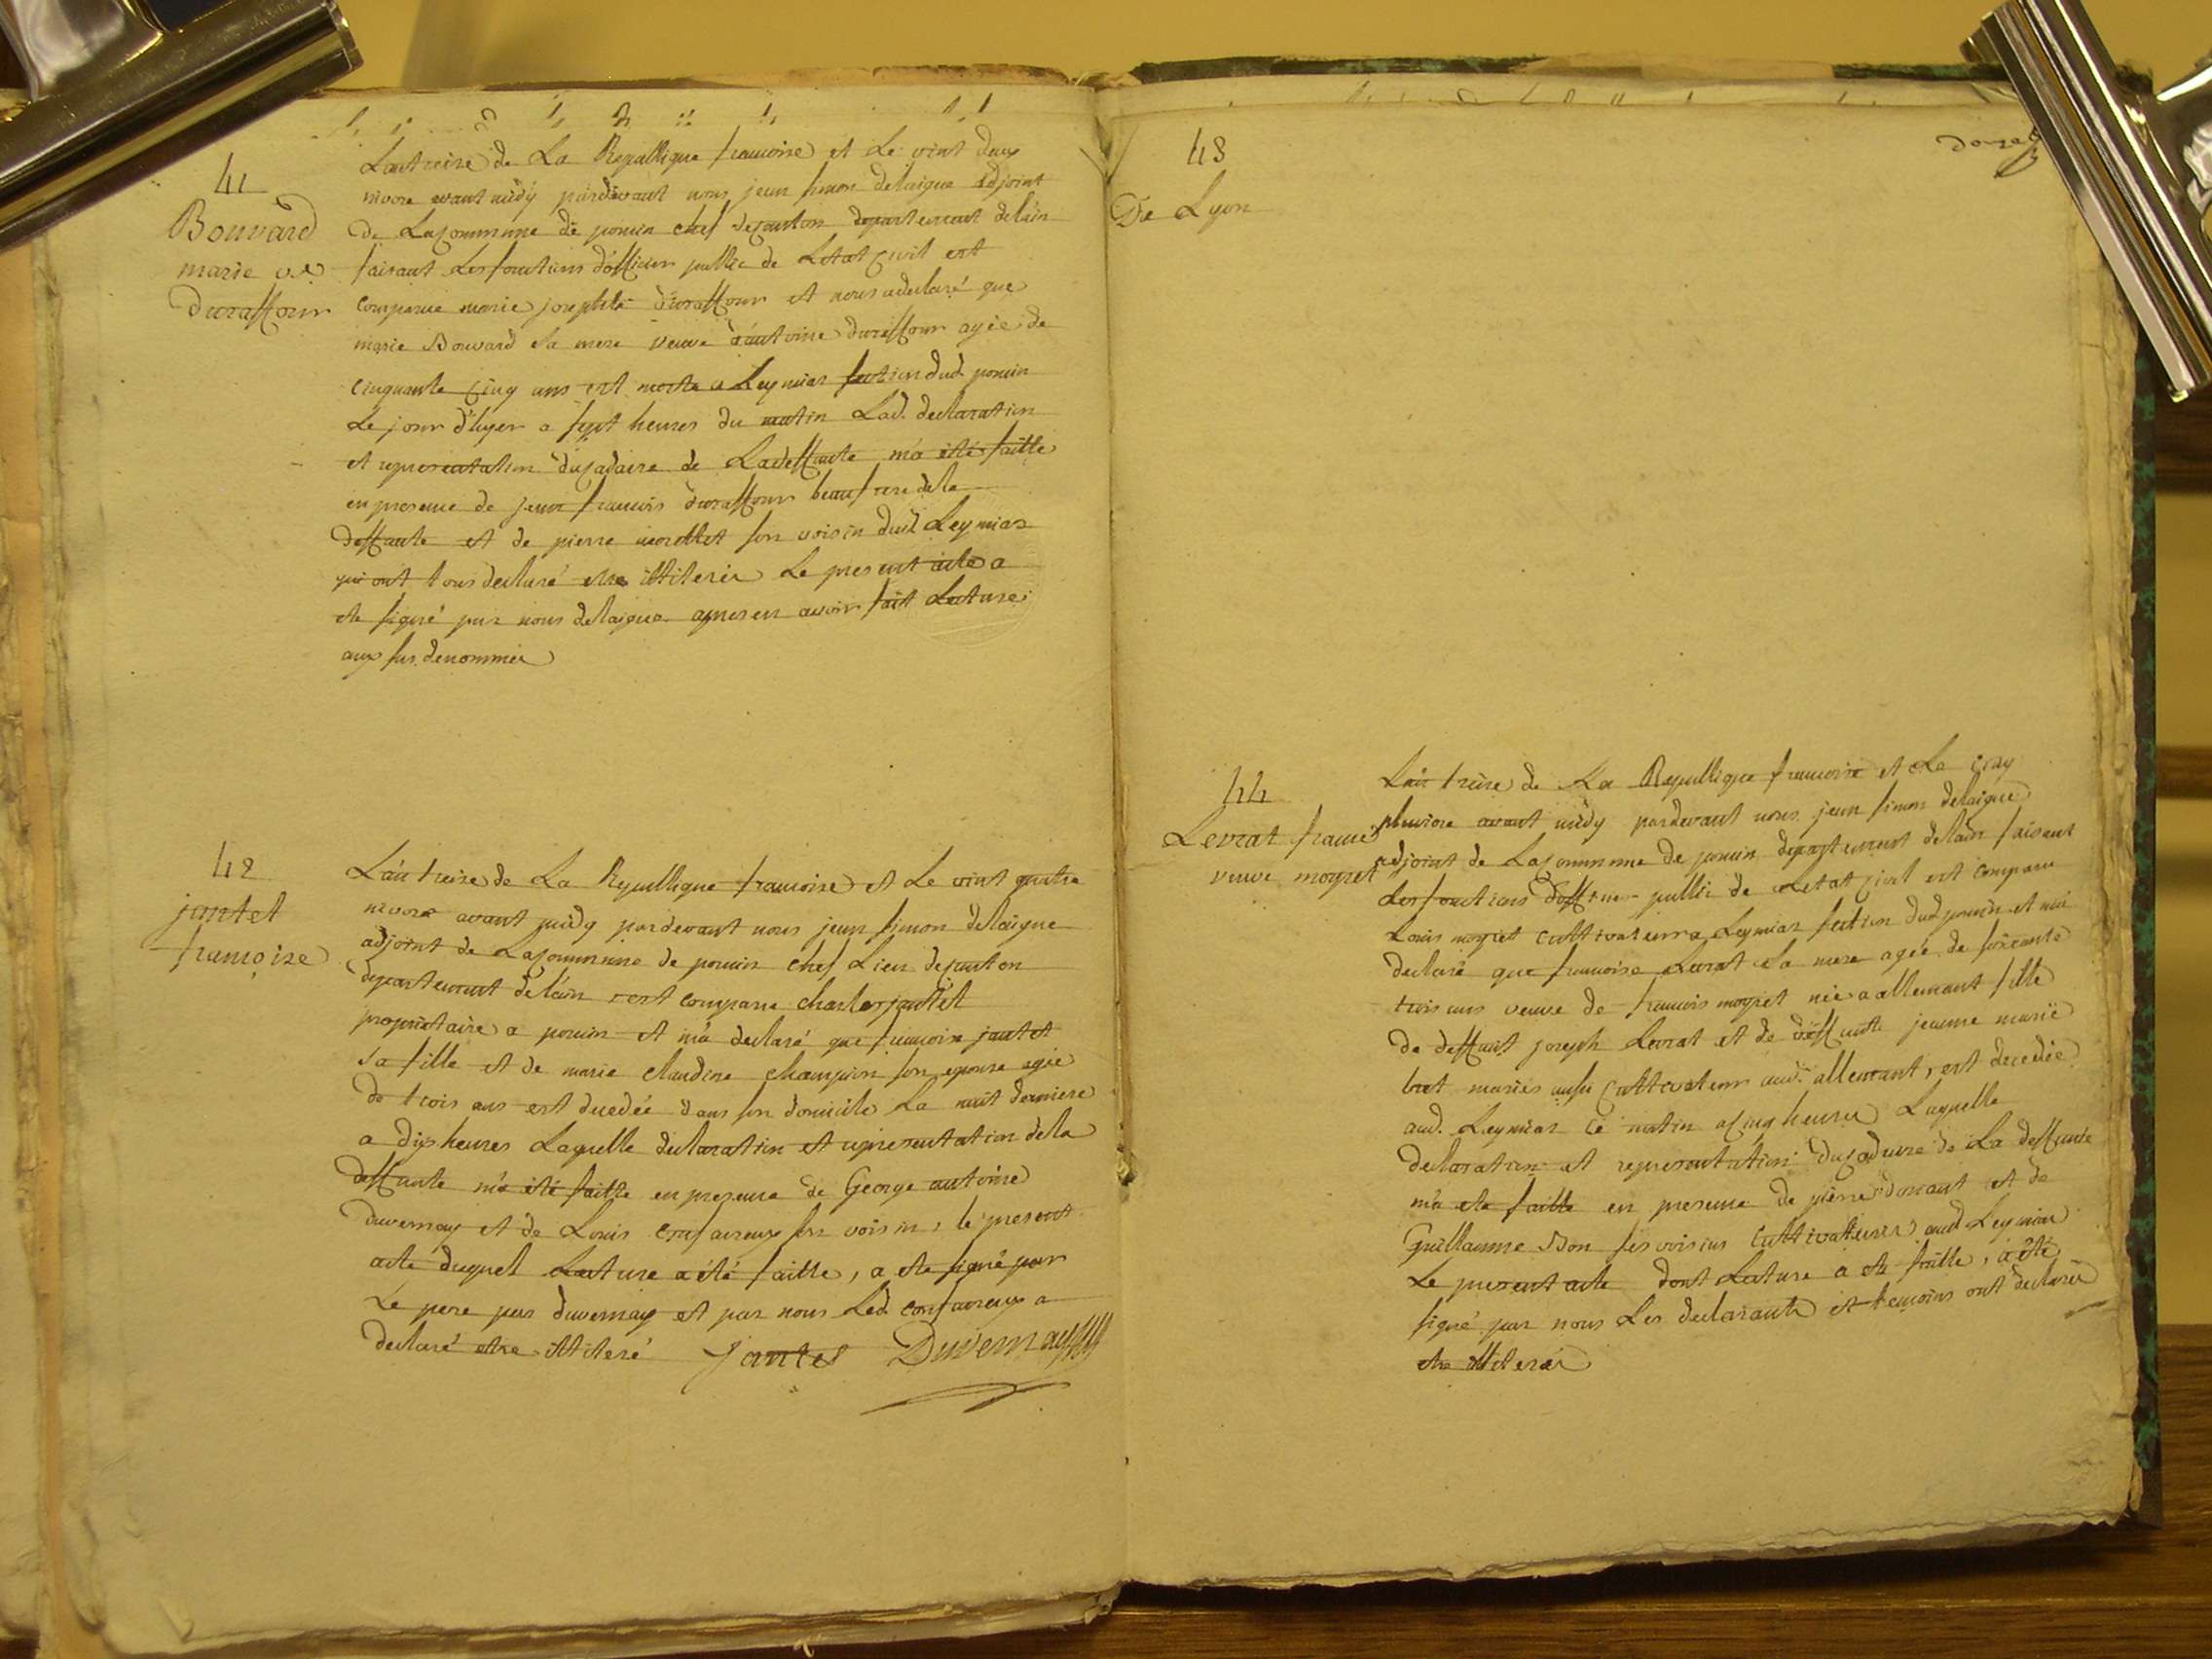 41
Bouvard
marie ve
duraffour
Lantreise de La Republlique francoise et Le vint deux
nivore avant midy pardevant nous jean simon delaigue adjoint
de Lacommune de poncin chef decanton departement delain
faisant Les fonctions d'officier public de Letat civil est
comparue marie josephte duraffour et nous a declaré que
marie Bouvard sa mere veuve d'antoine duraffour agée de
cinquante cinq ans est morte a Leymiat section dud. poncin
Le jour d'hyer a sept heures du matin Lad. declaration
et representation du cadavre de Ladeffunte m'a été faitte
en presence de jean francois duraffour beaufrere dela
deffunte et de pierre morellet son voisin dud Leymiat
qui ont tous declaré etre illiterés Le present acte a
ete signé par nous delaigue apres en avoir fait Lecture
aux sus. denommés
42
jantet
françoise
L'an treise de La Republlique francoise et Le vint quatre
nivore avant midy pardevant nous jean simon delaigue
adjoint de Lacommune de poncin chef Lieu decanton
departement delain est comparu charles jantet
proprietaire a poncin et m'a declaré que francoise jantet
sa fille et de marie claudine champion son epouse agée
de trois ans est decedée dans son domicile La nuit derniere
a dix heures Laquelle declaration et representation dela
deffunte m'a été faitte en presence de George antoine
duvernay et de Louis confavreux son voisin, le present
acte duquel Lecture a été faitte, a ete signé par
Le pere par duvernay et par nous Led. confavreux a
declaré etre illiteré jantet Duvernay
43
De Lyon
douze
44
Levrat france
veuve moyret
L'an treise de La Republlique francoise et Le cinq
pluviore avant midy pardevant nous jean simon delaigue
adjoint de Lacommune de poncin departement delain faisant
Les fonctions d'officier public de Letat civil est comparu
Louis moyret cultivateur a Leymiat section dud poncin et m'a
declaré que francoise Levrat sa mere agée de soixante
trois ans veuve de francois moyret née a allemant fille
de deffunt joseph Levrat et de deffunte jeanne marie
bret mariés aussi cultivateur aud. allemant, est decedée
aud. Leymiat ce matin a cinq heures Laquelle
declaration et representation du cadavre de La deffunte
m'a ete faitte en presence de pierre durant et de
Guillaume Bon ses voisins cultivateurs aud Leymiat
Le present acte dont Lecture a ete faitte, a été
signé par nous Les declarants et temoins ont declarés
etre illiterés